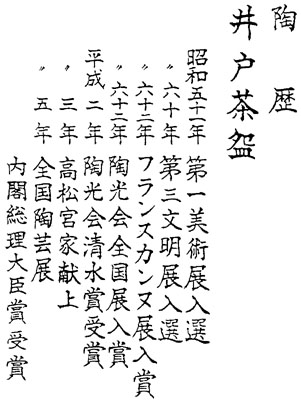 陶歴
井戸茶盌
昭和五十一年 第一美術展入選
〃六十年 第三文明展入選
〃六十二年 フランスカンヌ展入賞
〃六十三年 陶光会全国展入賞
平成二年 陶光会清水賞受賞
〃三年 高松宮家献上
〃五年 全国陶芸展
内閣総理大臣賞受賞